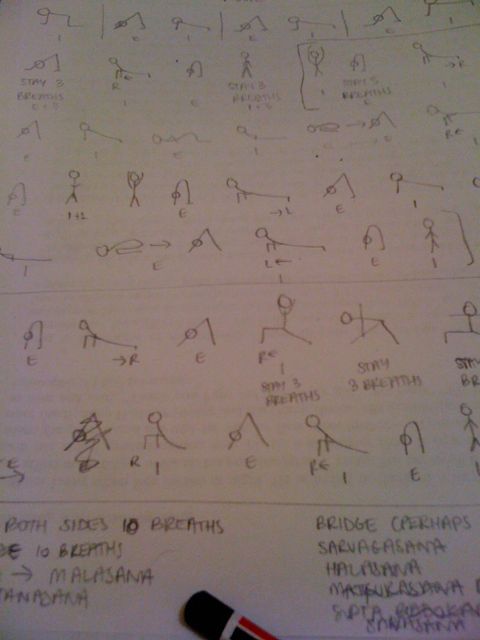 I E I E I E I
STAY 3 BREATHS E + 3 R I E STAY 3 BREATHS I + 3 I STAY 5 BREATHS E I → R
E I E I E R←
E I+1 E → L E I
I E L← I E I
E → R E R← I STAY 3 BREATHS STAY 3 BREATHS STAY
E R I E R← I E I
BOTH SIDES 10 BREATHS
10 BREATHS
→ MALASANA
BRIDGE (PERHAPS
SARVAGASANA
HALASANA
SUPTA